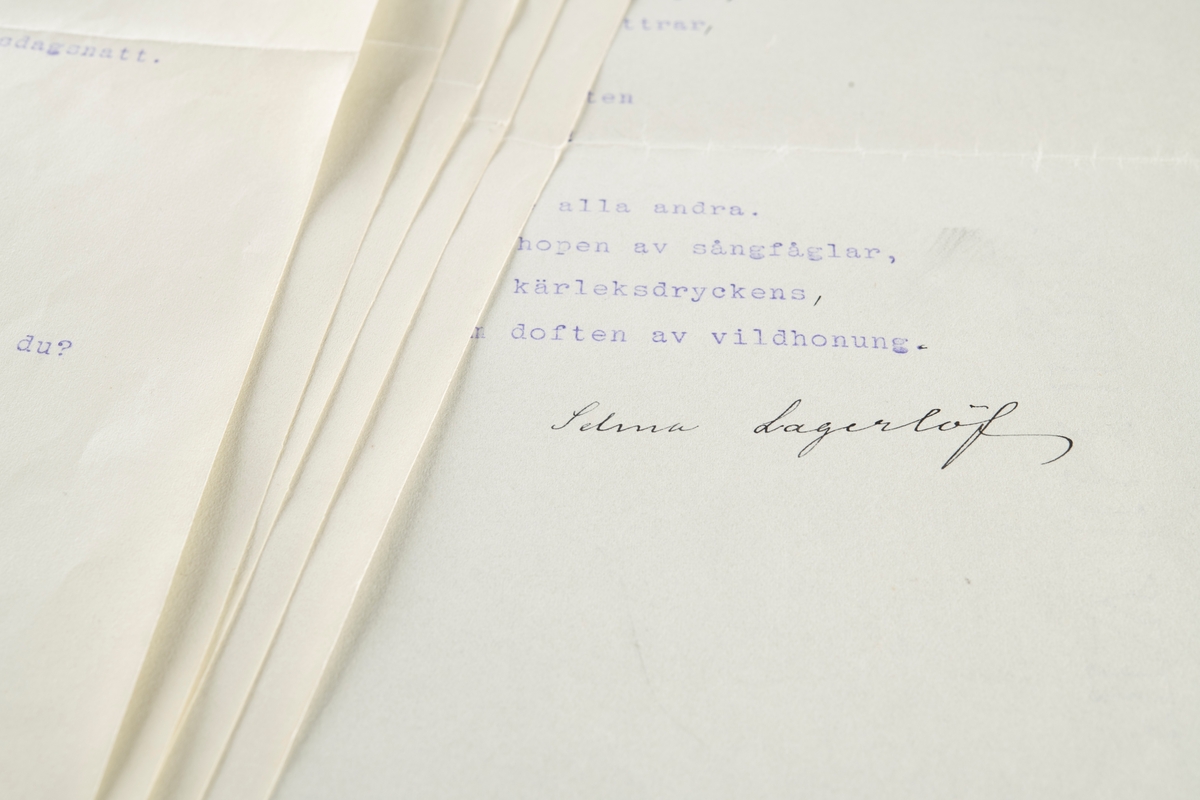 du?
alla andra.
hopen av sångfåglar,
kärleksdryckens,
doften av vildhonung.
Selma Lagerlöf